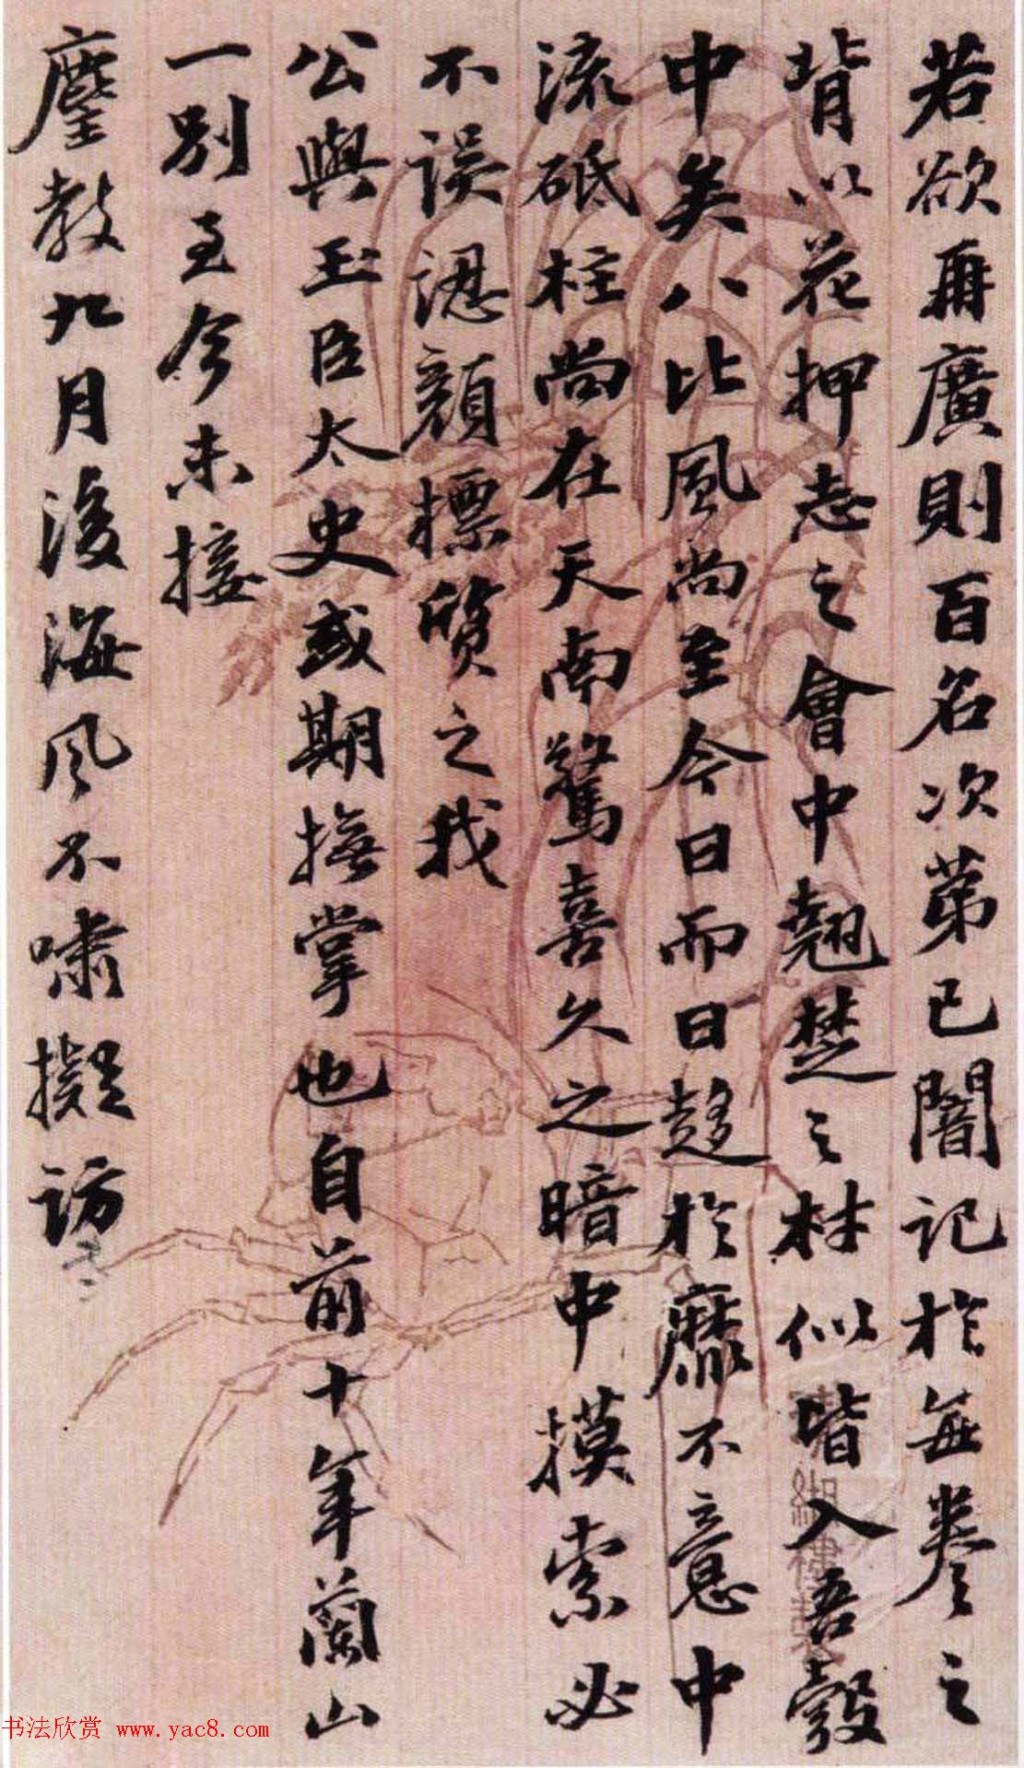 若欲再廣則百名次第已闇記於每卷之
背以花押志之會中翹楚之材似皆入吾彀
中矣八比風尚至今日而日趍於靡不意中
流砥柱尚在天南驚喜久之暗中摸索必
不误认顏標質之我
公與玉臣太史或期撫掌也自前十年蘭山
一別至今未接
麈教九月後海风不嘯擬访
书法欣赏 www.yac8.com